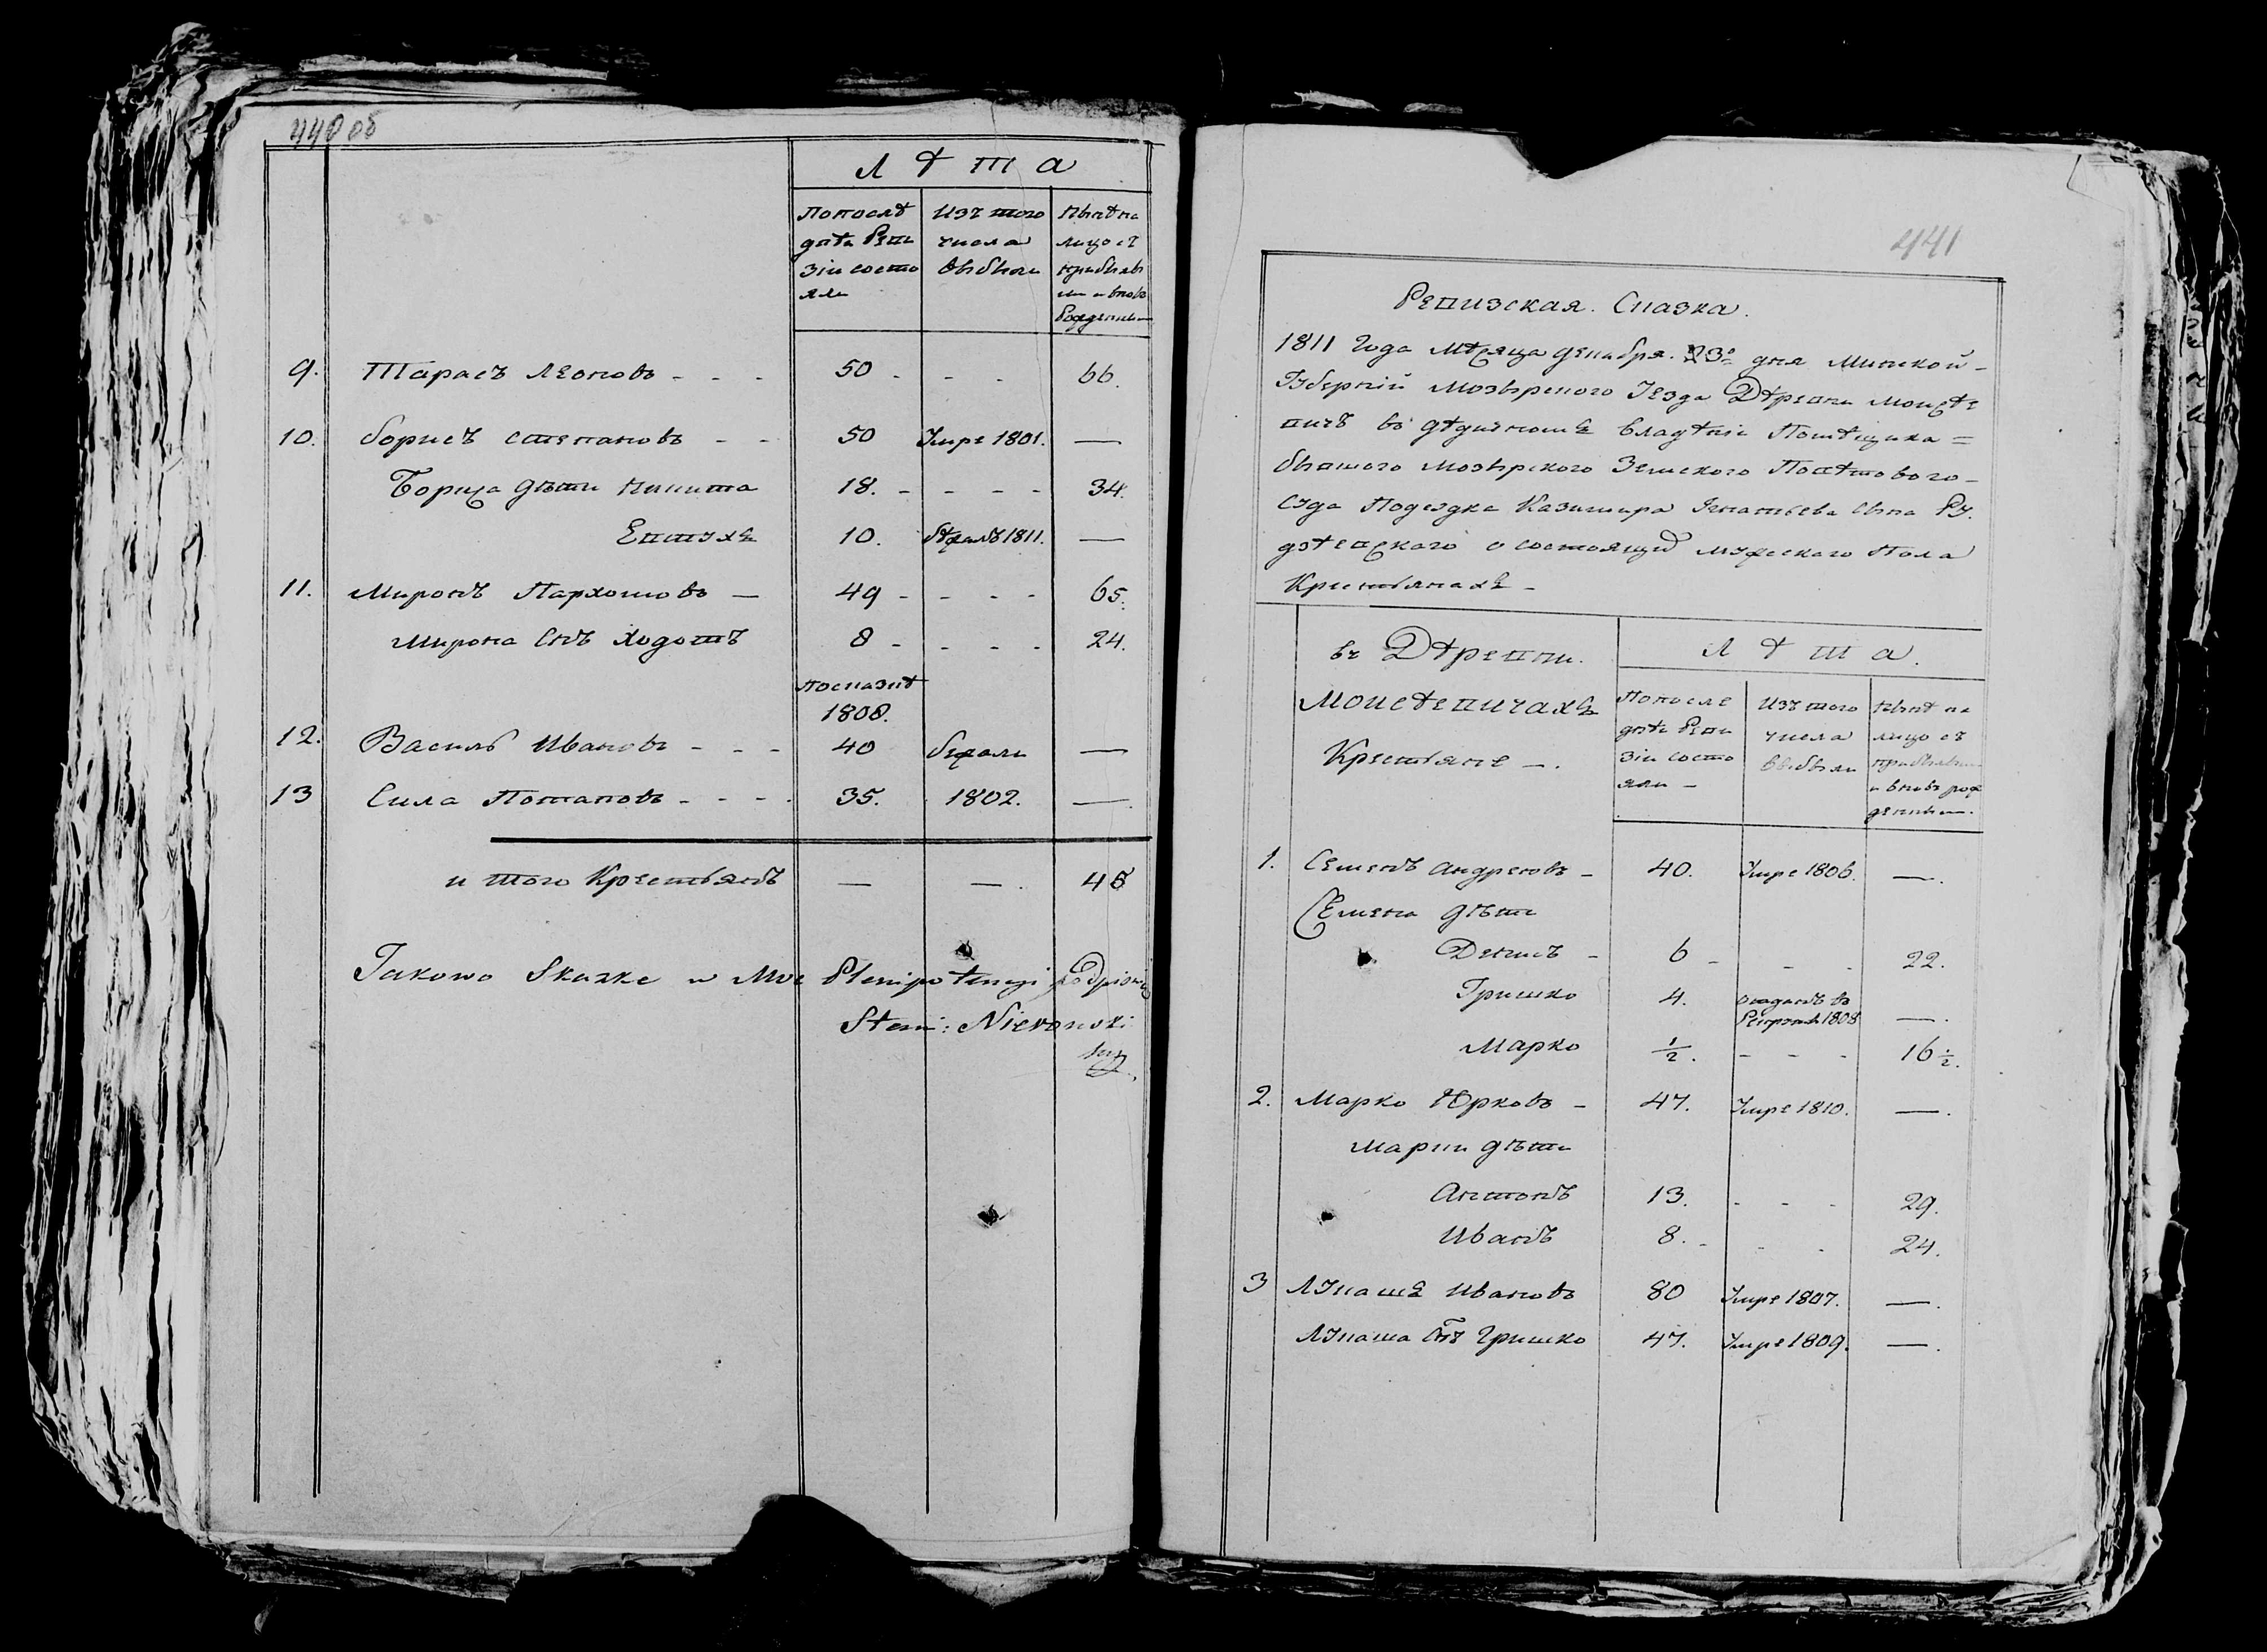 440 об
Л ѣ т а
По посл ѣ
дн ѣ Реви
зіи состо
яли
Изъ того
числа
выбыли
Нын ѣ на
лицо съ
прибывши
ми и вновь
Рожденны
9. Тарасъ Леоновъ - - - 50 - - - 66.
10. борисъ степановъ - - 50 Умре 1801. —
Бориса дѣти Никита 18. - - - - 34.
Евтухъ 10. бѣжалъ 1811. —
11. Миронъ Пархомовъ — 49 - - - - 65.
Мирона Снъ Ходотъ 8 - - - - 24.
По сказкѣ
1808.
12. Василь Ивановъ - - - 40 бежали —
13 Сила Потаповъ - - - - 35. 1802. —
и того Крестьянъ — — . 45
Takowo Skazke w Moc Plenipotencyi Podpisuię
Stani: Nieronski
441
Ревизская. Сказка.
1811 Года Мѣсяца декабря. 23º дня Минской -
Губерніи Мозырского Уезда Дѣревни Моисѣе
вичъ въ дѣдизномъ владѣніи Помѣщика =
бывшого Мозырского Земского Повѣтового -
Суда Подсудка Казимира Игнатьева сына Ру.
дзѣевского о состоящихъ мужеского Пола
Крестьянахъ -
въ Дѣревни.
Моисѣевичахъ
Крестьяне —.
Л ѣ т а.
По после
днѣ Реви
зіи состо
яли -
Изъ того
числа
выбыли
Нынѣ на
лицо съ
прибывши
и вновь рож
денными.
1. Семенъ андреевъ - 40. Умре 1806. —.
Семена дѣти
Денисъ - 6 - - - 22.
Гришко 4. отданъ въ
Рекруты 1808 —.
Марко ½. - - - 16 ½.
2. Марко Юрковъ - 47. Умре 1810. —.
Марки дѣти
Антонъ 13. - - - 29.
Иванъ 8. - - - 24.
3 Лукашъ Ивановъ 80 Умре 1807. —.
Лукаша Снъ Гришко 47. Умре 1809. —.